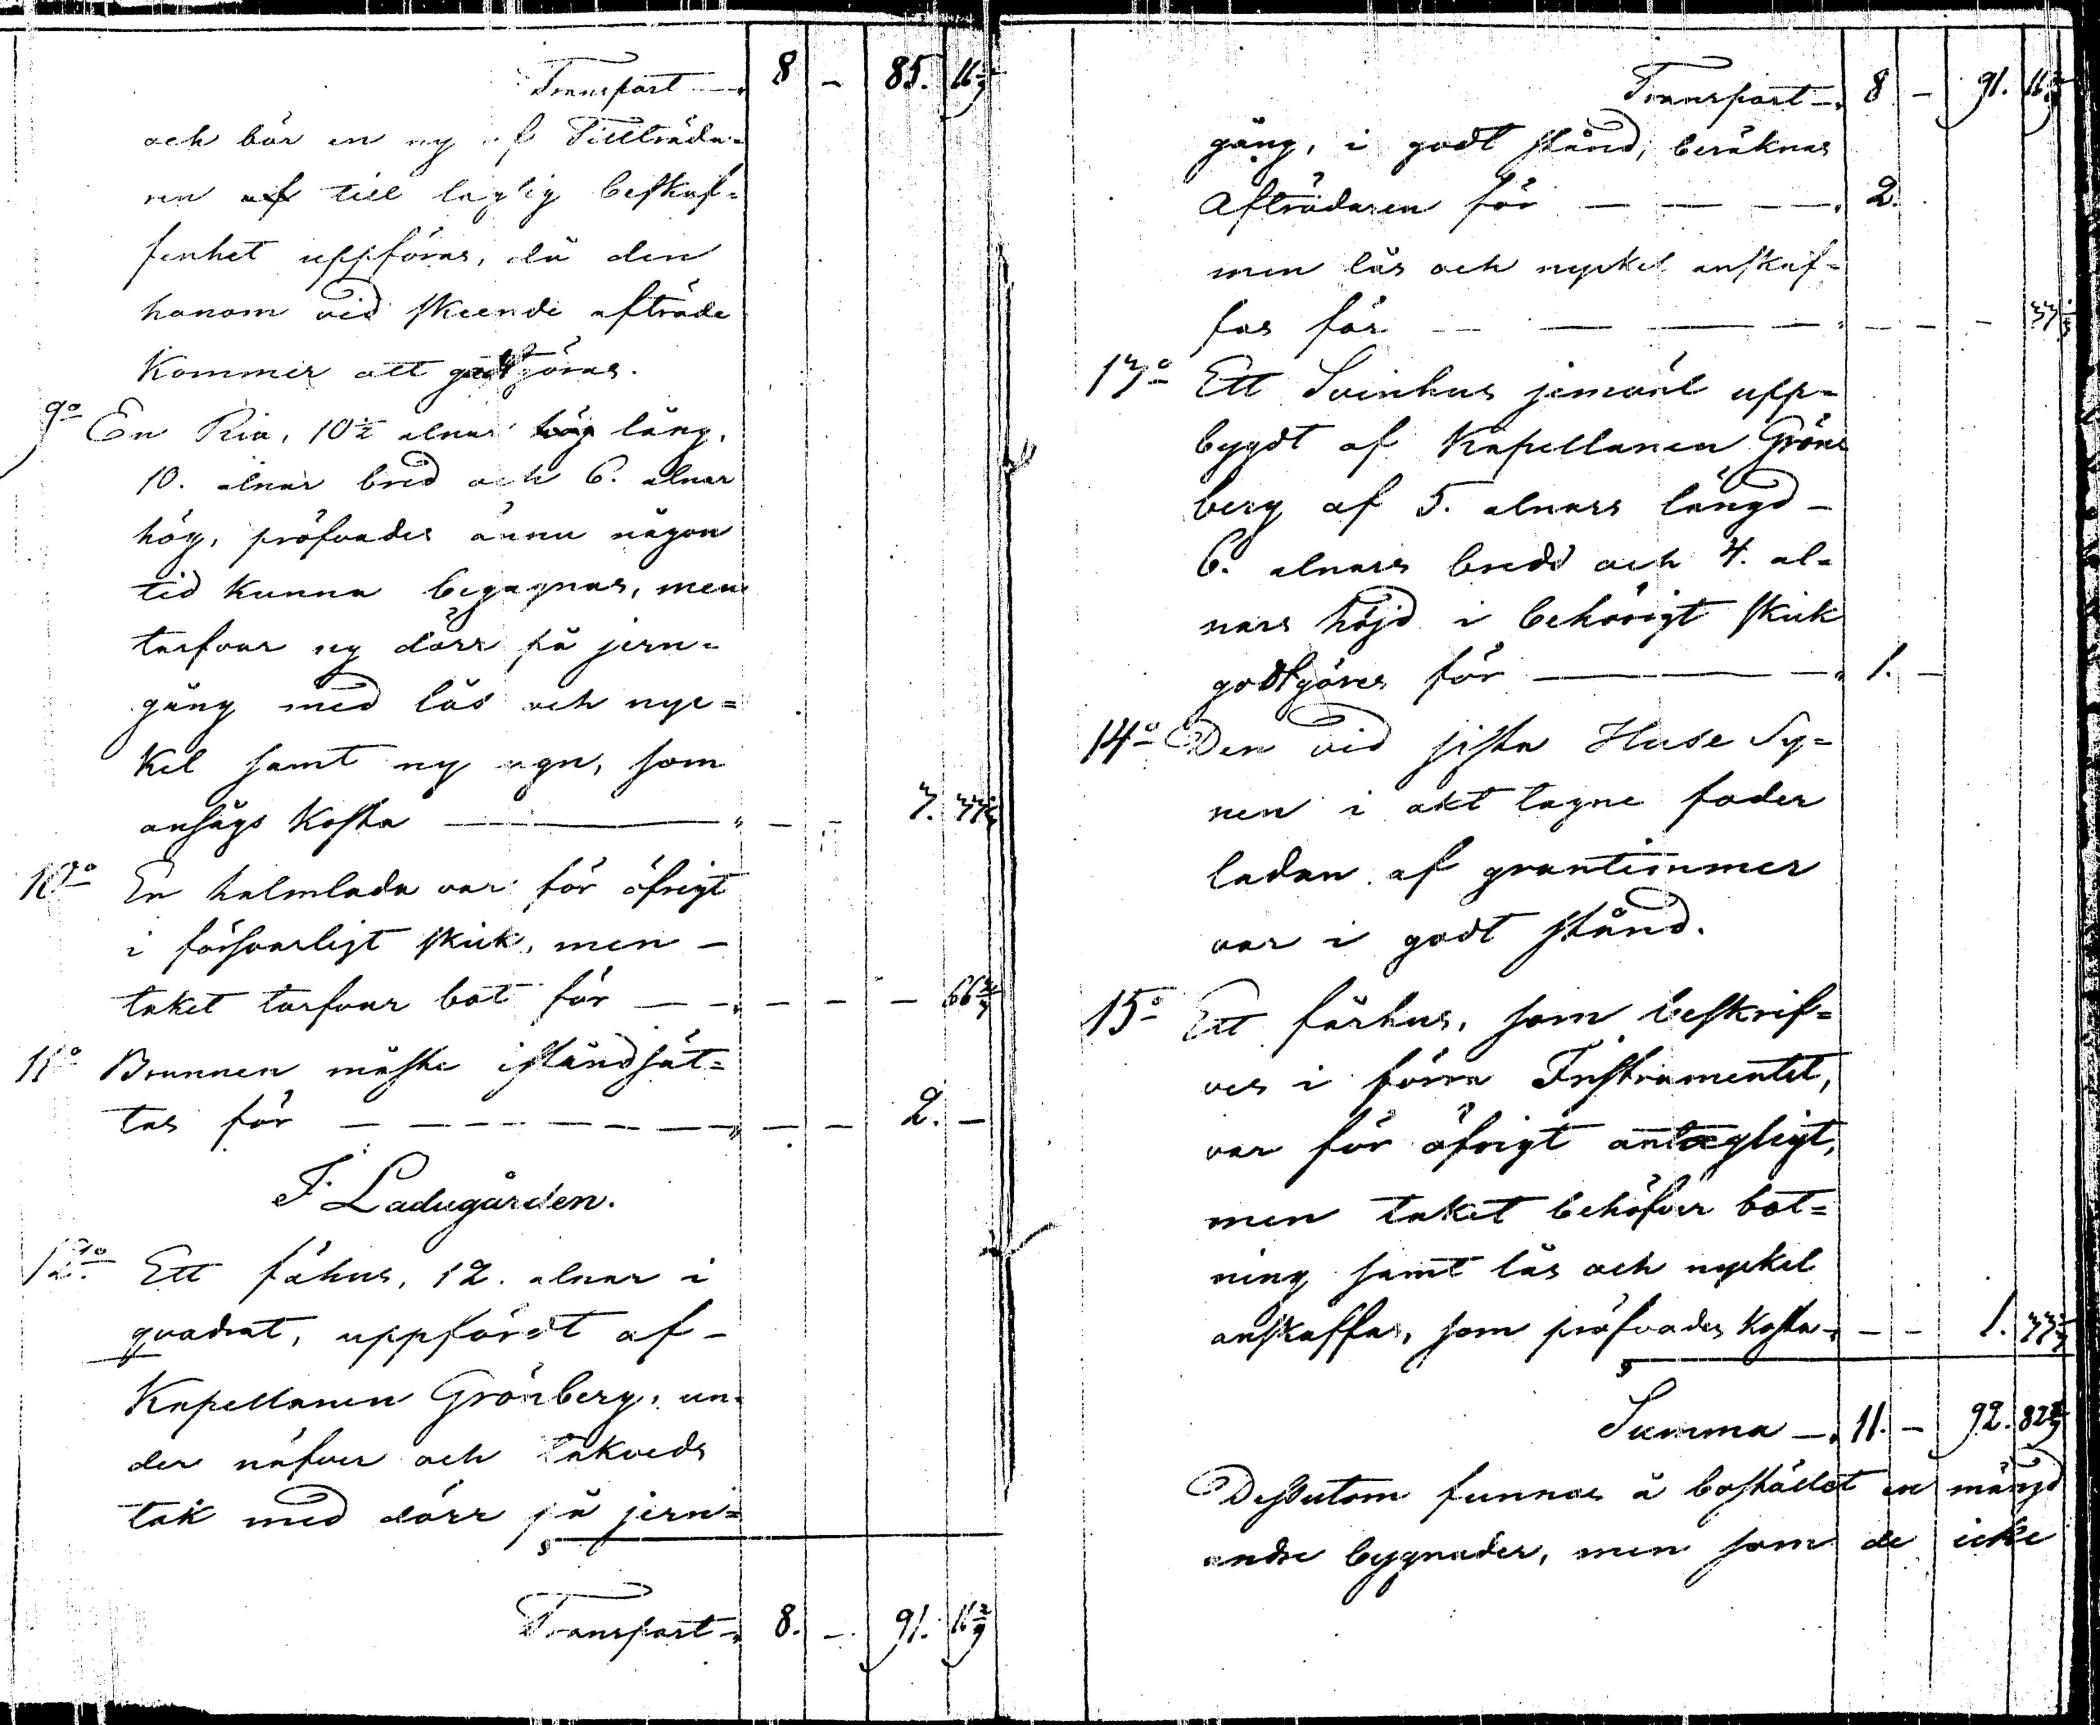 Transport — 8 — 85. 11 1/9
och bör en ny af Tillträda=
ren af till laglig beskaf=
fenhet uppföras, då den
honom vid skeende afträde
kommer att godtgöras.
9o En Ria, 10 1/2 alnar hög lång,
10. alnar bred och 6. alnar
hög, pröfvades ännu någon
tid kunna begagnas, men
tarfvar ny dörr på jern=
gång med lås och nyc=
kel samt ny ugn, som
ansågs kosta — — — 3. 33 1/3
10o En halmlada var för öfrigt
i försvarligt skick, men —
taket tarfvar bot för — — — — 66 2/3
11o Brunnen måste iståndsät=
tas för — — — — — 2. —
I Ladugården.
12o Ett fähus, 12. alnar i
quadrat, uppfördt af —
Kapellanen Grönberg, un=
der näfver och takveds
tak med dörr på jern=
Transport — 8. — 91. 11 1/9
Transport — 8 — 91. 11 1/9
gång, i godt stånd, beräknas
Afträdaren för — — — 2.
men lås och nyckel anskaf=
fas för — — — — — — 33 1/3
13o Ett Svinhus jemväl upp=
bygdt af Kapellanen Grön=
berg af 5. alnars längd —
6. alnars bredd och 4. al=
nars höjd i behörigt skick
godtgöres för — — 1. —
14o Den vid sista Huse Sy=
nen i akt tagne foder
ladan af grantimmer
var i godt stånd.
15o Ett fårhus, som beskrif=
ves i förra Instrumentet,
var för öfrigt antagligt,
men taket behöfver bot=
ning samt lås och nyckel
anskaffas, som pröfvades kosta — — — 1. 33 1/3
Summa — 11. — 92. 82 2/9
Dessutom funnos å bostället en mängd
andre bygnader, men som de icke